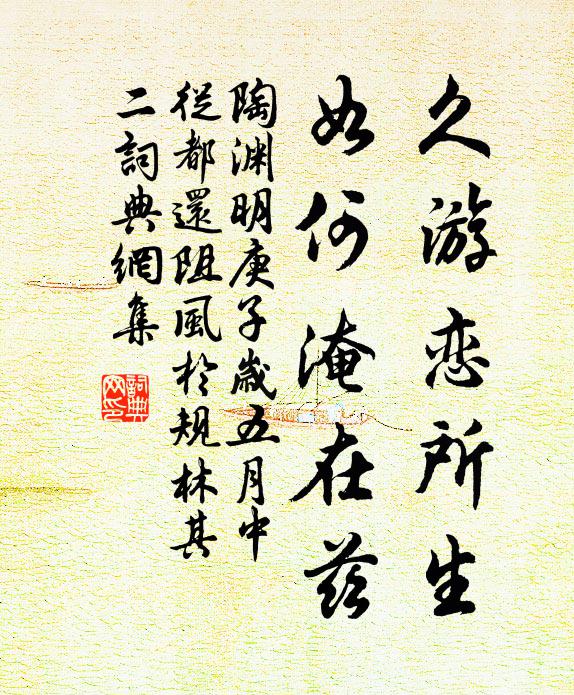 久游恋所生
如何淹在兹
陶渊明庚子歲五月中
從都還阻風於規林其
二詞典網集
詞典
网印